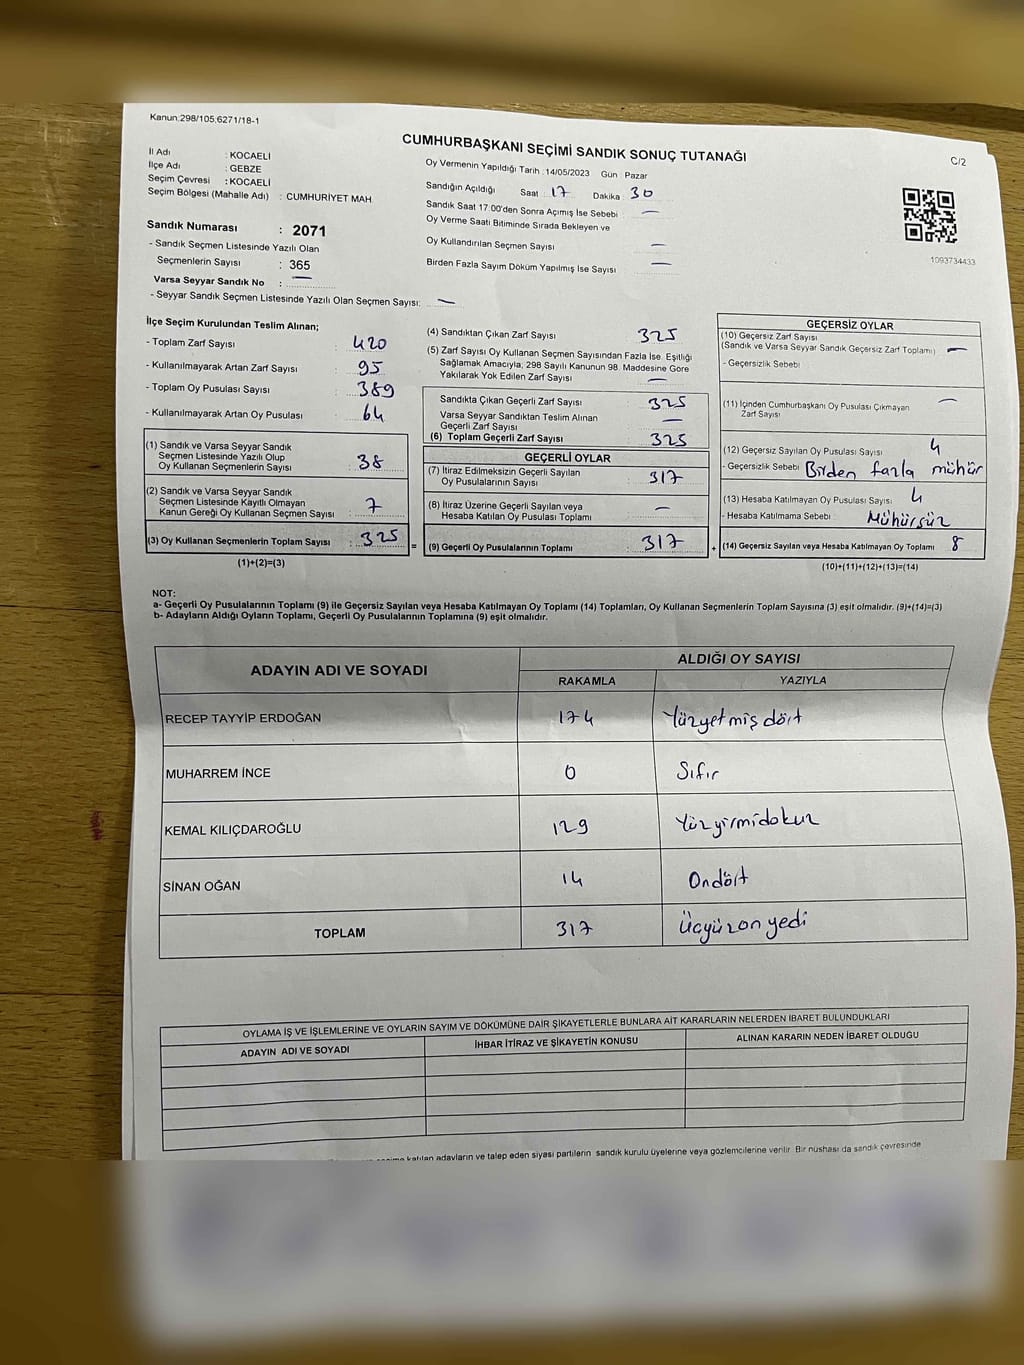 Kanun:298/105,6271/18-1
CUMHURBAŞKANI SEÇİMİ SANDIK SONUÇ TUTANAĞI
C/2
İl Adı : KOCAELİ
İlçe Adı : GEBZE
Seçim Çevresi : KOCAELİ
Seçim Bölgesi (Mahalle Adı) : CUMHURİYET MAH.
Sandık Numarası : 2071
- Sandık Seçmen Listesinde Yazılı Olan
Seçmenlerin Sayısı : 365
Varsa Seyyar Sandık No : —
- Seyyar Sandık Seçmen Listesinde Yazılı Olan Seçmen Sayısı: —
Oy Vermenin Yapıldığı Tarih : 14/05/2023 Gün : Pazar
Sandığın Açıldığı Saat : 17 Dakika : 30
Sandık Saat 17:00'den Sonra Açımış İse Sebebi : —
Oy Verme Saati Bitiminde Sırada Bekleyen ve
Oy Kullandırılan Seçmen Sayısı : —
Birden Fazla Sayım Döküm Yapılmış İse Sayısı : —
1093734433
İlçe Seçim Kurulundan Teslim Alınan;
- Toplam Zarf Sayısı : 420
- Kullanılmayarak Artan Zarf Sayısı : 95
- Toplam Oy Pusulası Sayısı : 389
- Kullanılmayarak Artan Oy Pusulası : 64
(1) Sandık ve Varsa Seyyar Sandık
Seçmen Listesinde Yazılı Olup
Oy Kullanan Seçmenlerin Sayısı : 38
(2) Sandık ve Varsa Seyyar Sandık
Seçmen Listesinde Kayıtlı Olmayan
Kanun Gereği Oy Kullanan Seçmen Sayısı : 7
(3) Oy Kullanan Seçmenlerin Toplam Sayısı : 325 =
(1)+(2)=(3)
(4) Sandıktan Çıkan Zarf Sayısı : 325
(5) Zarf Sayısı Oy Kullanan Seçmen Sayısından Fazla İse, Eşitliği
Sağlamak Amacıyla; 298 Sayılı Kanunun 98. Maddesine Göre
Yakılarak Yok Edilen Zarf Sayısı : —
Sandıkta Çıkan Geçerli Zarf Sayısı : 325
Varsa Seyyar Sandıktan Teslim Alınan
Geçerli Zarf Sayısı : —
(6) Toplam Geçerli Zarf Sayısı : 325
GEÇERLİ OYLAR
(7) İtiraz Edilmeksizin Geçerli Sayılan
Oy Pusulalarının Sayısı : 317
(8) İtiraz Üzerine Geçerli Sayılan veya
Hesaba Katılan Oy Pusulası Toplamı : —
(9) Geçerli Oy Pusulalarının Toplamı : 317 +
GEÇERSİZ OYLAR
(10) Geçersiz Zarf Sayısı
(Sandık ve Varsa Seyyar Sandık Geçersiz Zarf Toplamı) : —
- Geçersizlik Sebebi
(11) İçinden Cumhurbaşkanı Oy Pusulası Çıkmayan
Zarf Sayısı : —
(12) Geçersiz Sayılan Oy Pusulası Sayısı : 4
- Geçersizlik Sebebi : Birden fazla mühür
(13) Hesaba Katılmayan Oy Pusulası Sayısı : 4
- Hesaba Katılmama Sebebi : Mühürsüz
(14) Geçersiz Sayılan veya Hesaba Katılmayan Oy Toplamı : 8
(10)+(11)+(12)+(13)=(14)
NOT:
a- Geçerli Oy Pusulalarının Toplamı (9) ile Geçersiz Sayılan veya Hesaba Katılmayan Oy Toplamı (14) Toplamları, Oy Kullanan Seçmenlerin Toplam Sayısına (3) eşit olmalıdır. (9)+(14)=(3)
b- Adayların Aldığı Oyların Toplamı, Geçerli Oy Pusulalarının Toplamına (9) eşit olmalıdır.
ADAYIN ADI VE SOYADI
ALDIĞI OY SAYISI
RAKAMLA YAZIYLA
RECEP TAYYİP ERDOĞAN 174 Yüzyetmiş dört
MUHARREM İNCE 0 Sıfır
KEMAL KILIÇDAROĞLU 129 Yüzyirmidokuz
SİNAN OĞAN 14 Ondört
TOPLAM 317 Üçyüzon yedi
OYLAMA İŞ VE İŞLEMLERİNE VE OYLARIN SAYIM VE DÖKÜMÜNE DAİR ŞİKAYETLERLE BUNLARA AİT KARARLARIN NELERDEN İBARET BULUNDUKLARI
ADAYIN ADI VE SOYADI İHBAR İTİRAZ VE ŞİKAYETİN KONUSU ALINAN KARARIN NEDEN İBARET OLDUĞU
katılan adayların ve talep eden siyasi partilerin sandık kurulu üyelerine veya gözlemcilerine verilir. Bir nüshası da sandık çevresinde